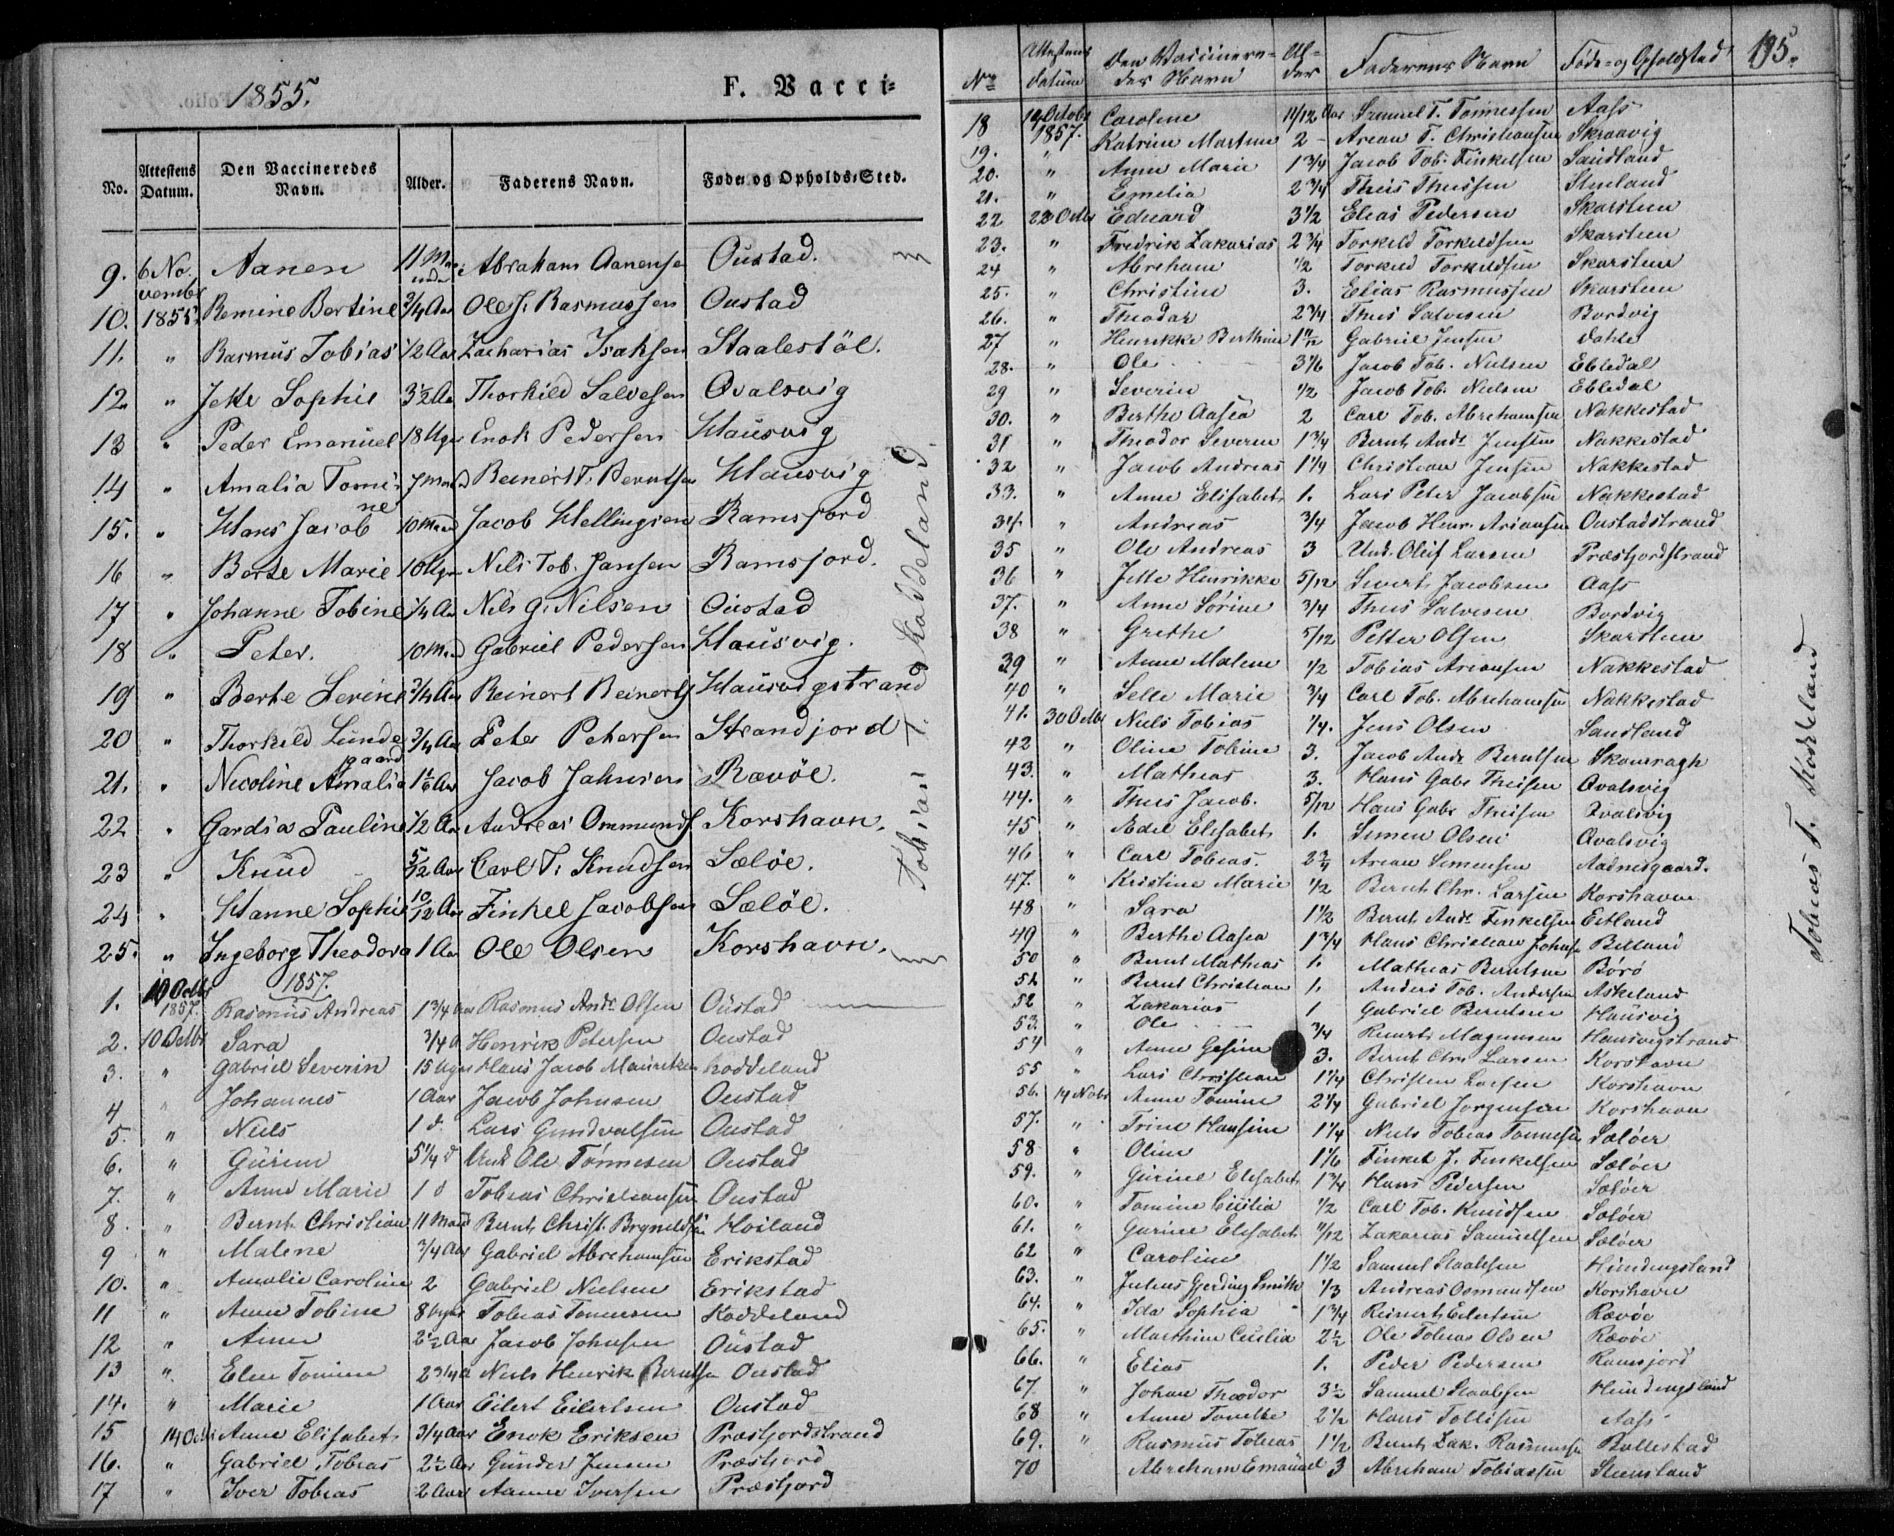 1855.
F. Vacci=
No.
Attestens Datum.
Den Vaccineredes Navn.
Alder.
Faderens Navn.
Føde og Opholds=Sted.
9. 6 No- Aanen 11 Maa- Abrahams Aanense Oustad.
vember neder
10. 1855. Remine Bertine 3/4 Aar Ole J. Rasmussen Oustad
11. " Rasmus Tobias 1/2 Aar Zacharias Isaksen Staalestöl.
12. " Jette Sophie 3½ Aar Thorkild Salvesen Qvalsvig
13 " Peder Emanuel 18 Uger Enok Pedersen Hausvig
14 " Amalia Tomi- 7 Maaned Reinert T. Berntsen Hausvig
ne
15. " Hans Jacob 10 Maaned Jacob Hellingsen Ramsfjord
16 " Berte Marie 10 Uger Nils Tob. Jansen Ramsfjord.
17 " Johanne Tobine 1/4 Aar Nils G. Nilsen Oustad
18 " Peter. 10 Maaned Gabriel Pedersen Hausvig.
19 " Berte Severine 3/4 Aar Reinert Reinerts Hausvigstrand
20 " Thorkild Lunde- 3/4 Aar Peter Petersen Strandjord
gaard
21. " Nicoline Amalia 1½ Aar Jacob Jahnsen Rævöe.
22 " Gardia Pauline 1/2 Aar Andreas Ommunds Korshavn.
23 " Knud 5/12 Aar Carl T. Knudsen Sælöe.
24 " Hanne Sophie 10/12 Aar Finkel Jacobsen Sælöe.
25. " Ingeborg Theodora 1 Aar Ole Olsen Korshavn.
Tobias T. Koddeland
1857.
1. 10 Octbr 1857. Rasmus Andreas 1 3/4 Aar Rasmus Andr. Olsen Oustad
2. 10 Octbr Sara 3/4 Henrik Petersen Oustad
3. " Gabriel Severin 15 Uger Hans Jacob Mauritsen Koddeland
4 " Johannes 1 Aar Jacob Johnsen Oustad
5. " Niels 1 d. Lars Gundvalsen Oustad
6. " Gurine 5 1/4 d Und. Ole Tønnesen Oustad
7. " Anne Marie 1 d Tobias Christiansen Oustad
8. " Bernt Christian 11 Maand Bernt Christ. Brynildsen Høiland
9 " Malene 3/4 Aar Gabriel Abrahamsen Erikstad
10. " Amalie Caroline 2 Gabriel Nielsen Erikstad
11 " Anne Tobine 8 Uger Tobias Tønnesen Koddeland
12 " Anne 2½ Aar Jacob Johnsen Oustad
13 " Elen Tomine 2 3/4 Niels Henrik Berntsen Oustad
14. " Marie 1 Aar Eilert Eilertsen Oustad
15 14 Oct Anne Elisabet 3/4 Aar Enok Eriksen Præstfjordstrand
16. " Gabriel Tobias 2½ Aar Gunder Jensen Præstfjord
17 " Iver Tobias 2 Aar Aanen Iversen Præstfjord
195.
No
Attestens Datum
Den Vaccinere- des Navn
Al- der
Faderens Navn
Føde- og Opholdsted
18 14 Octobr 1857. Caroline 11/12 Aar Samuel T. Tønnessen Aass
19. " Katrine Martine 2 - Arean T. Christiansen Skraavig
20. " Anne Marie 1 3/4 Jacob Tob. Finkelsen Sandland
21. " Emelia 2 3/4 Theis Theissen Stueland
22 22 Octbr Eduard 3 1/2 Elias Pedersen Skarsteen
23. " Fredrik Zakarias 2 3/4 Torkeld Torkeldsen Skarsteen
24 " Abreham 1/2 Torkeld Torkeldsen Skarsteen
25. " Christine 3. Elias Rasmussen Skarsteen
26. " Theodor 2 3/4 Theis Salvesen Bordvig
27 " Henrikke Berthine Gabriel Jensen Dahle
28. " Ole 3 1/6 Jacob Tob. Nielsen Ebledal
29 " Severin 1/2 Jacob Tob. Nielsen Ebledal
30. " Berthe Aasea 2 Carl Tob. Abrehamsen Nakkestad
31 " Theodor Severin 1 3/4 Bernt Andr. Jensen Nakkestad
32 " Jacob Andreas 1 1/4 Christian Jensen Nakkestad
33. " Anne Elisabet 1. Lars Peter Jacobsen Nakkestad
34. " Andreas 3/4 Jacob Henr. Ariansen Oustadstrand
35 " Ole Andreas 3 Und. Oluf Larsen Præstfjordstrand
36 " Jette Henrikke 5/12 Sivert Jacobsen Aass
37. " Anne Sørine 3/4 Theis Salvesen Bordvig
38 " Grethe 5/12 Petter Olsen Skarsteen
39 " Anne Malene 1/2 Tobias Ariansen Nakkestad
40 " Selle Marie 3/4 Carl Tob. Abrehamsen Nakkestad
41. 30 Octbr Niels Tobias 1/4. Jens Olsen Sandland
42 " Oline Tobine 3. Jacob Andr Berntsen
43. " Mathias 3. Hans Gabr Theisen Qvalsvig
44. " Theis Jacob. 5/12 Hans Gabr Theisen Qvalsvig
45 " Edel Elisabet 1. Simon Olsen Qvalsvig
46 " Carl Tobias. 2 3/4 Arean Simensen Aadnesgaard.
47. " Kristine Marie 1/2 Bernt Chr. Larsen Korshavn
48 " Sara 1 1/2 Bernt Andr Finkelsen Eitland
49 " Berthe Aasea 1 3/4 Hans Christian Johns Belland
50 " Bernt Mathias 1. Mathias Berntsen Börö
52 " Bernt Christian 1. Anders Tob. Andersen Askeland
52 " Zakarias 1 Gabriel Berntsen Hausvig
53. " Ole 3/4 Reinert Magnusen Hausvigstrand
54 " Anne Gesine 3. Bernt Chr. Larsen Korshavn
55 " Lars Christian 1 1/4 Christen Larsen Korshavn
56. 14 Nobr Anne Tomine 2 1/4 Gabriel Jørgensen Korshavn
57. " Trine Hansine 1 1/4 Niels Tobias Tønnesen Sælöer
58 " Oline 1 1/6 Finkel J. Finkelsen Sælöer
59. " Gurine Elisabet 1 3/4 Hans Pedersen Sælöer
60. " Tomine Cicilia 1/2 Carl Tob. Knudsen Sælöer
61. " Gurine Elisabet 11/12 Zakarias Samuelsen Sælöer
62 " Caroline 1 1/2 Samuel Staalesen Hundingsland
63. " Julius Gjerding Smith 1/3 Andreas Osmundsen Korshavn
64. " Ida Sophia 1 3/4 Reinert Eilertsen Rævöe
65. " Marthine Cecilia 2½ Ole Tobias Olsen Rævöe
66. " Elias 1. Peder Pedersen Ramsfjord
67 " Johan Theodor 3½ Samuel Staalesen Hundingsland
68 " Anne Tonette 2 1/2 Hans Tollisen Aass
69. " Rasmus Tobias 1 1/2 Bernt Zak. Rasmussen Bollestad
70 Abreham Emanuel 3 Abreham Tobiassen Steensland
Tobias T. Koddeland